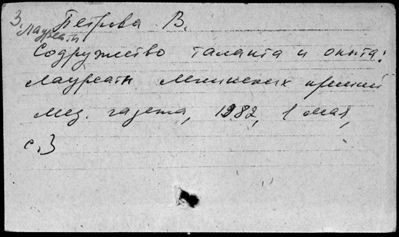 3. Петрова В.
Лауреаты
Содружество таланта и опыта:
Лауреаты Ленинских премий
Мед. газета, 1982, 1 мая,
с. 3